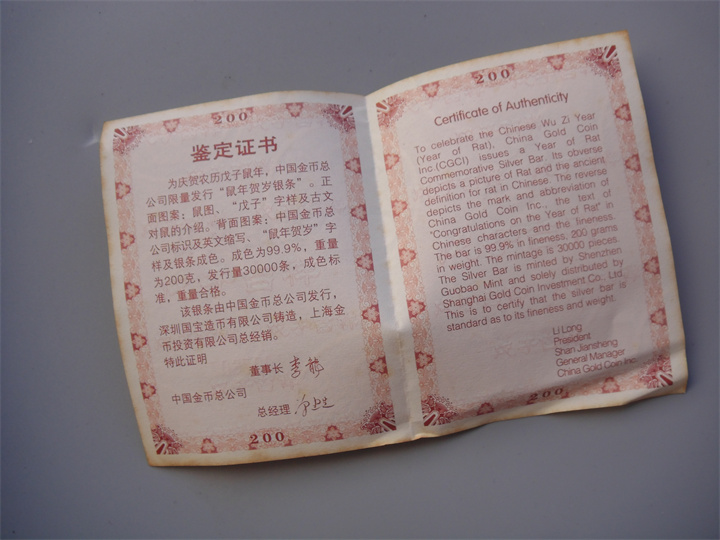 200
鉴定证书
为庆贺农历戊子鼠年，中国金币总
公司限量发行“鼠年贺岁银条”。正
面图案：鼠图、“戊子”字样及古文
对鼠的介绍。背面图案：中国金币总
公司标识及英文缩写、“鼠年贺岁”字
样及银条成色。成色为99.9%，重量
为200克，发行量30000条，成色标
准，重量合格。
该银条由中国金币总公司发行，
深圳国宝造币有限公司铸造，上海金
币投资有限公司总经销。
特此证明
董事长
中国金币总公司
总经理
200
200
Certificate of Authenticity
To celebrate the Chinese Wu Zi Year
(Year of Rat), China Gold Coin
Inc (CGCI) issues a Year of Rat
Commemorative Silver Bar. Its obverse
depicts a picture of Rat and the ancient
definition for rat in Chinese. The reverse
depicts the mark and abbreviation of
China Gold Coin Inc., the text of
"Congratulations on the Year of Rat" in
Chinese characters and the fineness.
The bar is 99.9% in fineness, 200 grams
in weight. The mintage is 30000 pieces.
The Silver Bar is minted by Shenzhen
Guobao Mint and solely distributed by
Shanghai Gold Coin Investment Co., Ltd.
This is to certify that the silver bar is
standard as to its fineness and weight.
Li Long
President
Shan Jiansheng
General Manager
China Gold Coin Inc.
200